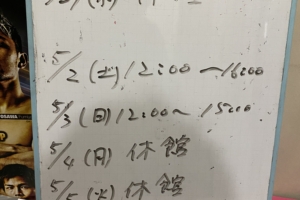 5/2 (土) 12:00 〜 16:00
5/3 (日) 12:00〜 15:00
5/4 (月) 休館
5/5 (火) 休館